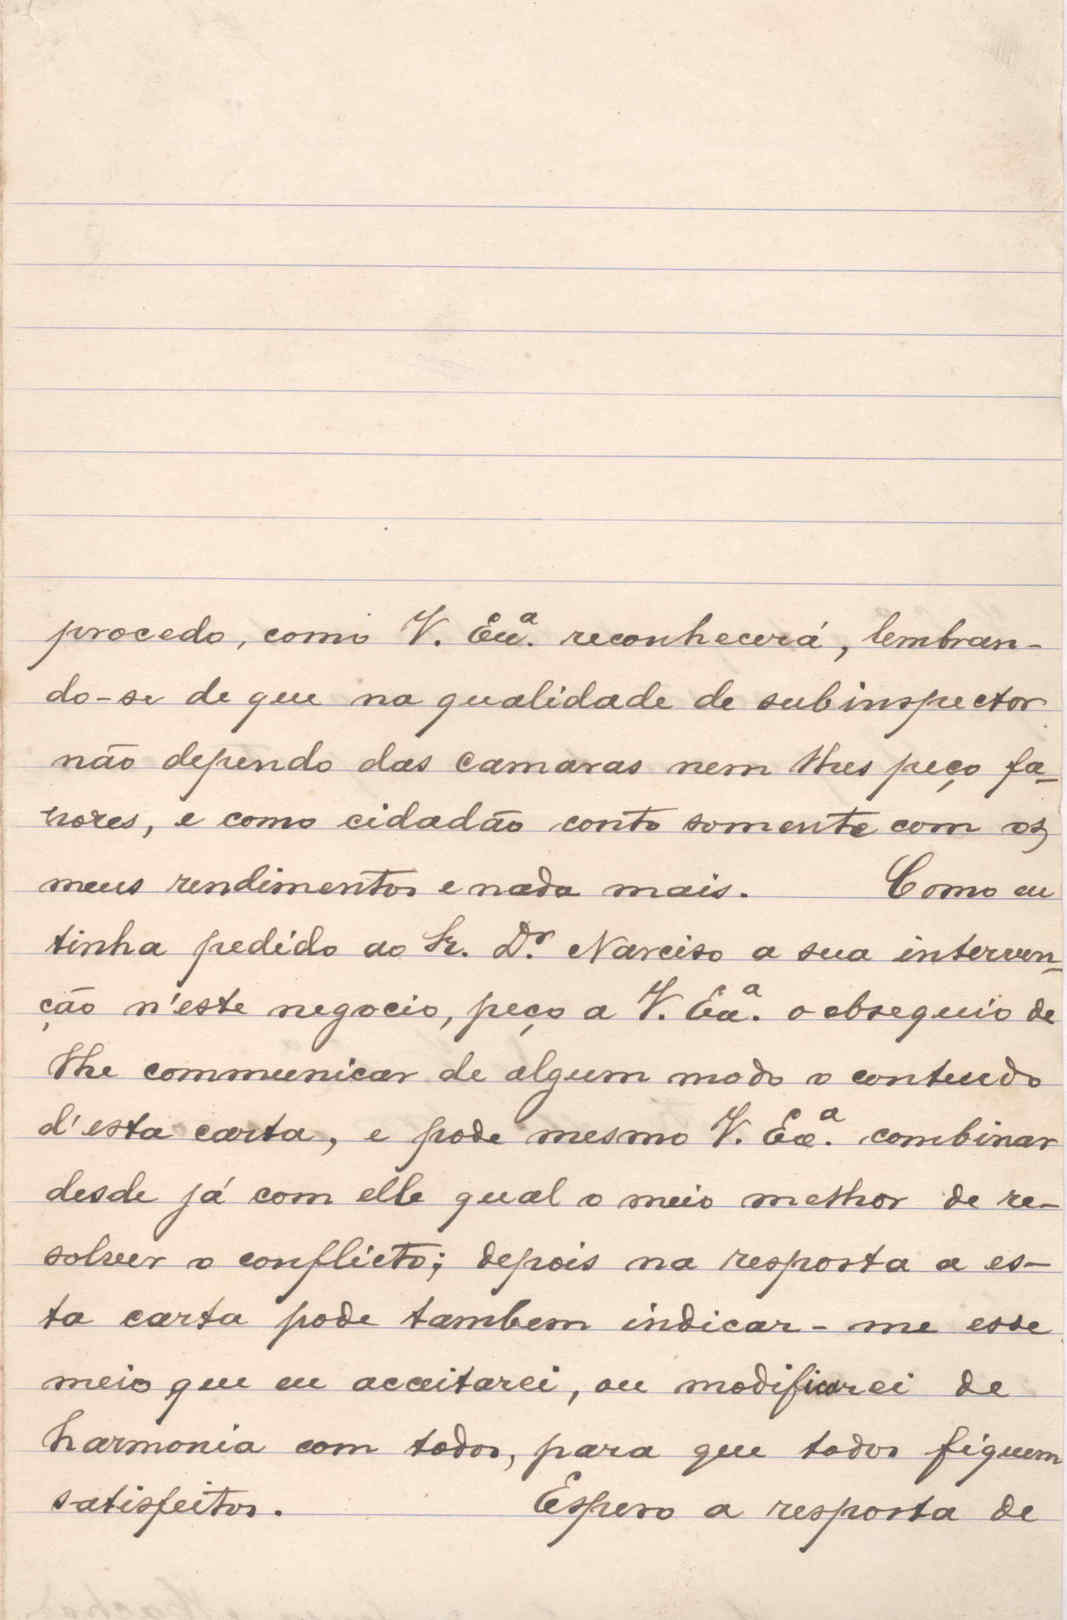 procedo, como V. Exª. reconhecerá, lembran-
do-se de que na qualidade de subinspector
não dependo das camaras nem lhes peço fa-
vores, e como cidadão conto somente com os
meus rendimentos e nada mais. Como eu
tinha pedido ao Sr. Dr. Narciso a sua interven-
ção n'este negocio, peço a V. Exª. o obsequio de
lhe communicar de algum modo o conteudo
d'esta carta, e pode mesmo V. Exª. combinar
desde já com elle qual o meio melhor de re-
solver o conflicto; depois na resposta a es-
ta carta pode tambem indicar-me esse
meio que eu acceitarei, ou modificarei de
harmonia com todos, para que todos fiquem
satisfeitos. Espero a resposta de